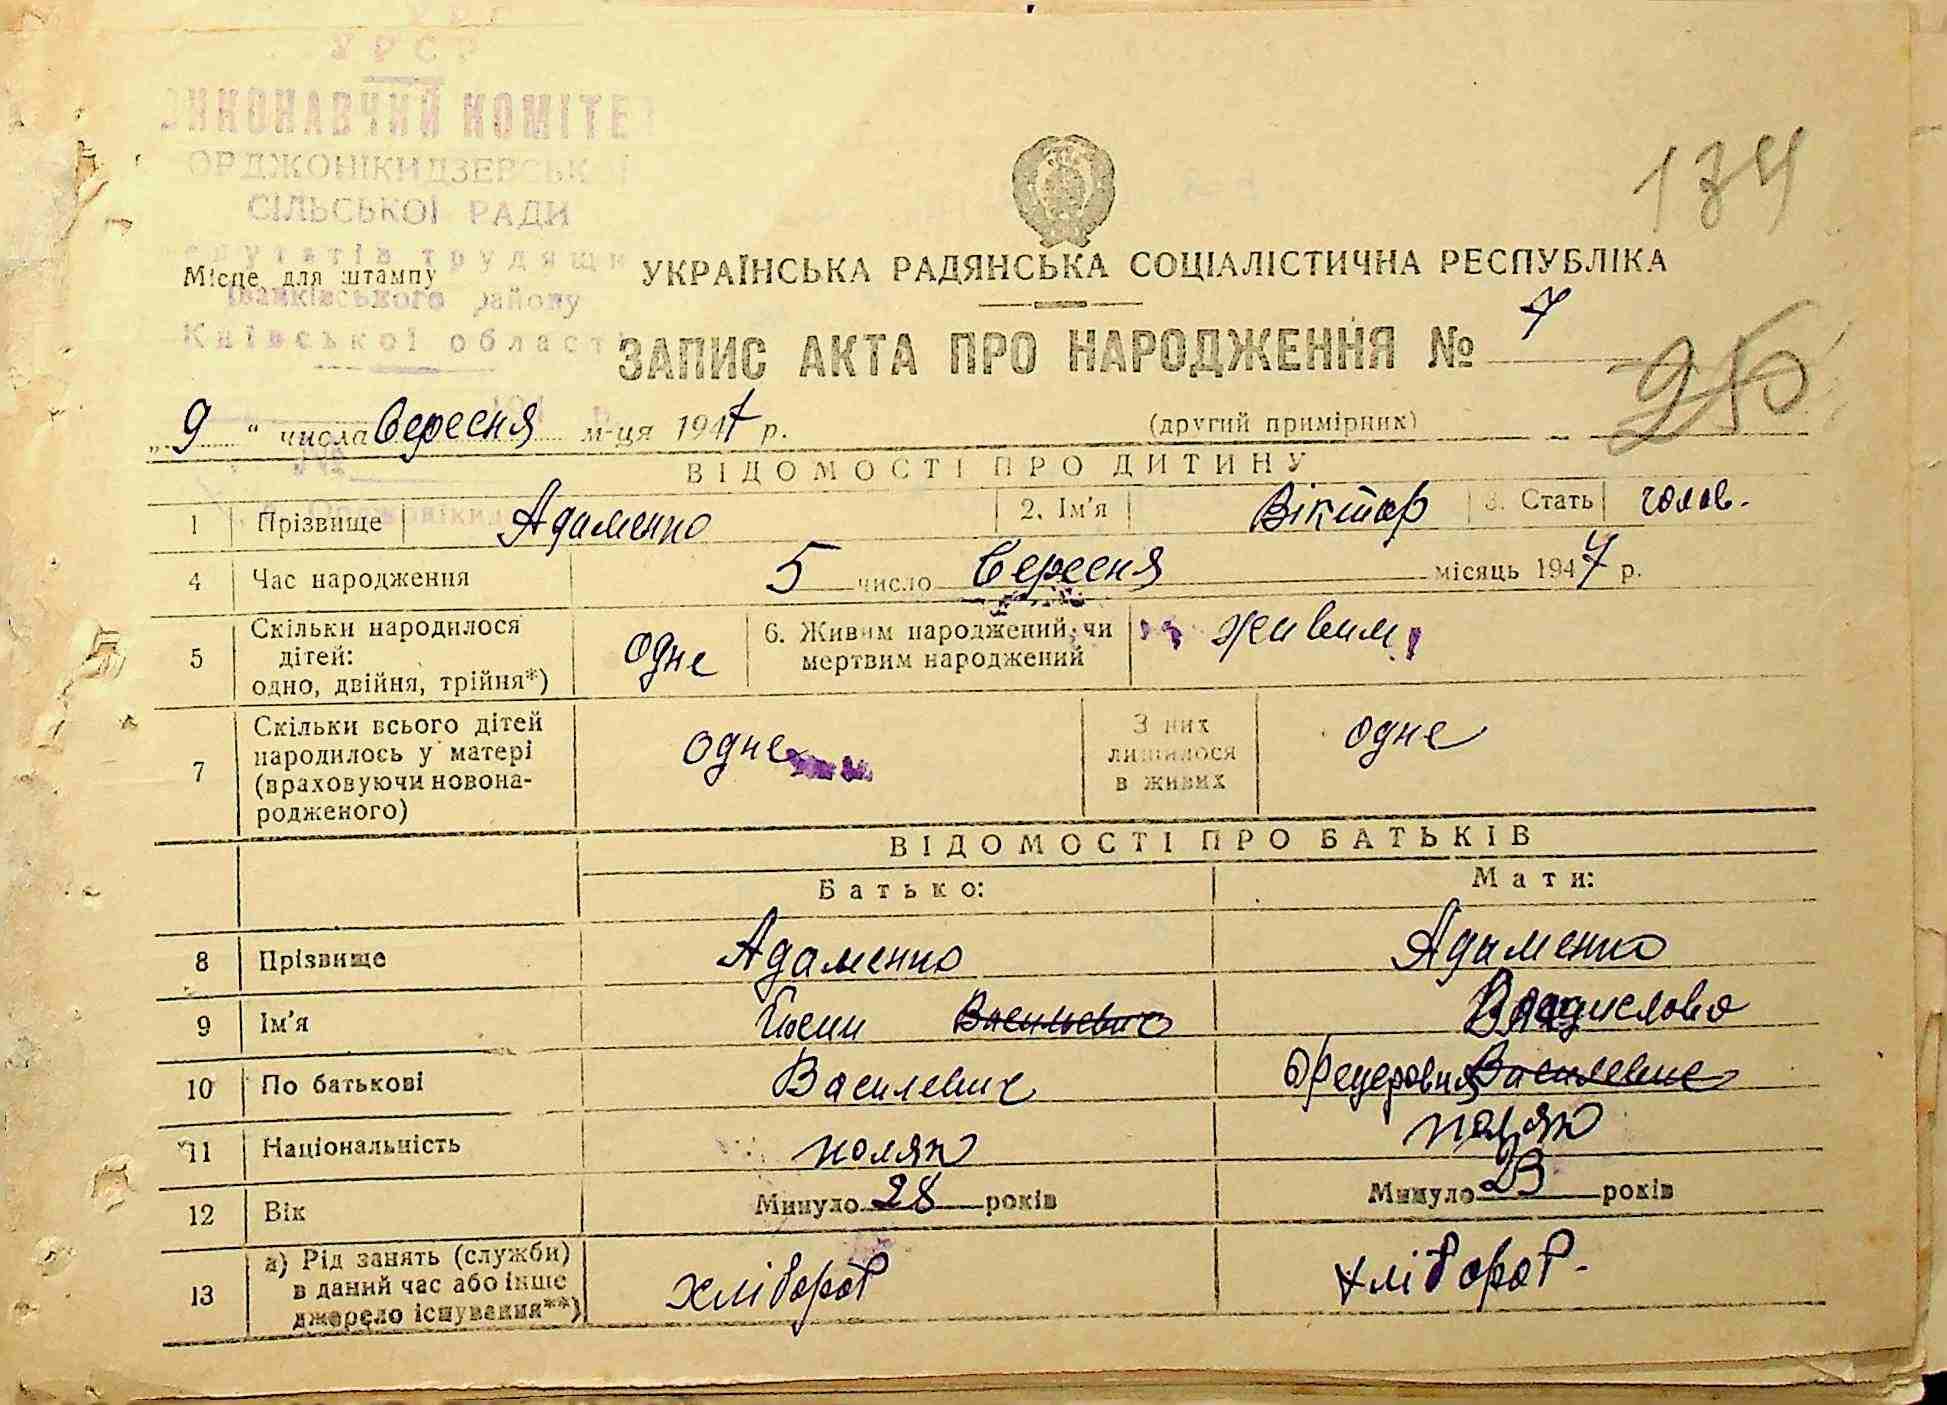 УРСР
ВИКОНАВЧИЙ КОМІТЕТ
ОРДЖОНІКИДЗЕВСЬКОЇ
СІЛЬСЬКОЇ РАДИ
депутатів трудящих
Іванківського району
Київської області
Місце для штампу
134
УКРАЇНСЬКА РАДЯНСЬКА СОЦІАЛІСТИЧНА РЕСПУБЛІКА
ЗАПИС АКТА ПРО НАРОДЖЕННЯ № 7
„9“ числа Вересня м-ця 1947 р. (другий примірник)
ВІДОМОСТІ ПРО ДИТИНУ
1 Прізвище Адаменко 2. Ім'я Віктор 3. Стать голов.
4 Час народження 5 число Вересня місяць 1947 р.
5 Скільки народилося дітей: одно, двійня, трійня*) одне 6. Живим народжений, чи мертвим народжений живим
7 Скільки всього дітей народилось у матері (враховуючи новонародженого) одне З них лишилося в живих одне
ВІДОМОСТІ ПРО БАТЬКІВ
Батько: Мати:
8 Прізвище Адаменко Адаменко
9 Ім'я Васильевич
10 По батькові Василевич Василевис
11 Національність поляк поляк
12 Вік Минуло 28 років Минуло 23 років
13 а) Рід занять (служби) в даний час або інше джерело існування**) хлібороб хлібороб-